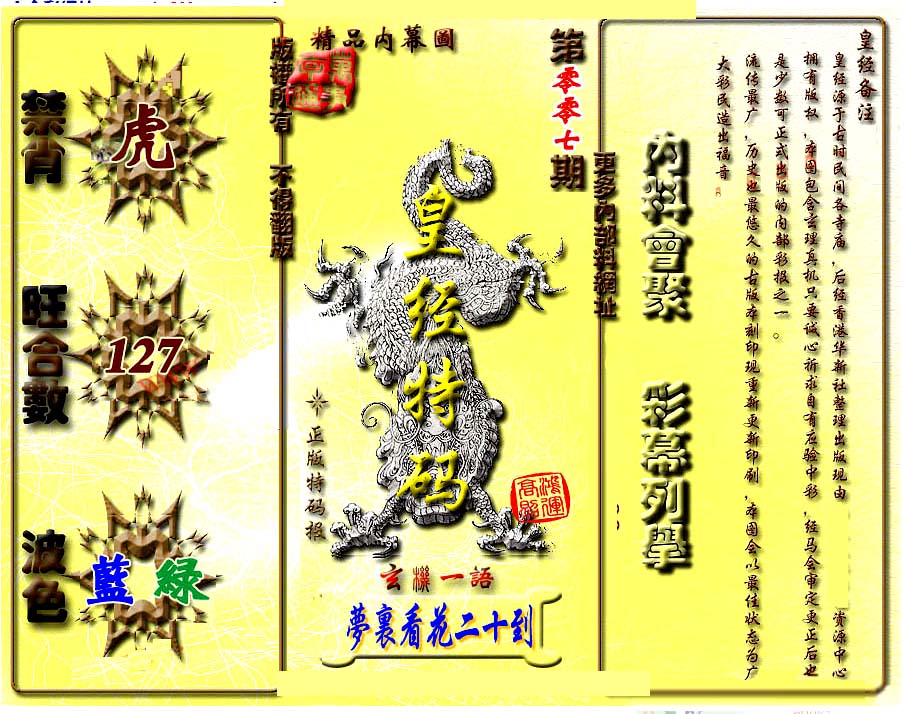 精品內幕圖
第零零七期
版權所有 不得翻版
更多內部料網址
禁肖
虎
旺合數
127
波色
藍 綠
皇经特码
正版特码报
鴻運高照
玄機一語
夢裏看花二十到
內料會聚 彩幕列舉
皇经备注
皇经源于古时民间各寺庙，后经香港华新社整理出版现由 资源中心
拥有版权，本图包含玄理真机只要诚心祈求自有应验中彩，经马会审定更正后也
是少数可正式出版的内部彩报之一。
流传最广，历史也最悠久的古版本刻印现重新更新印刷，本图会以最佳状态为广
大彩民造出福音